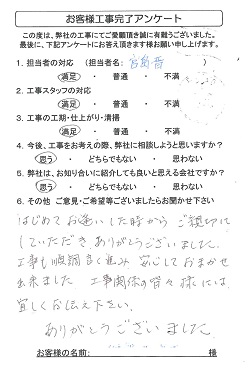 お客様工事完了アンケート
この度は、弊社の工事にてご愛顧頂き誠に有難うございました。
最後に、下記アンケートにお答え頂きます様お願い申し上げます。
1. 担当者の対応 (担当者名:
満足 ・ 普通 ・ 不満
2. 工事スタッフの対応
満足 ・ 普通 ・ 不満
3. 工事の工期・仕上がり・清掃
満足 ・ 普通 ・ 不満
4. 今後、工事をお考えの際、弊社に相談しようと思いますか?
思う ・ どちらでもない ・ 思わない
5. 弊社は、お知り合いに紹介しても良いと思える会社ですか?
思う ・ どちらでもない ・ 思わない
6. その他 ご意見・ご希望等ございましたらお聞かせ下さい
はじめてお逢いした時から ご親切に
していただき ありがとうございました。
工事も順調良く進み 安心しておまかせ
出来ました 工事関係の皆々様には、
宜しくお伝え下さい。
ありがとうございました
お客様の名前: 様